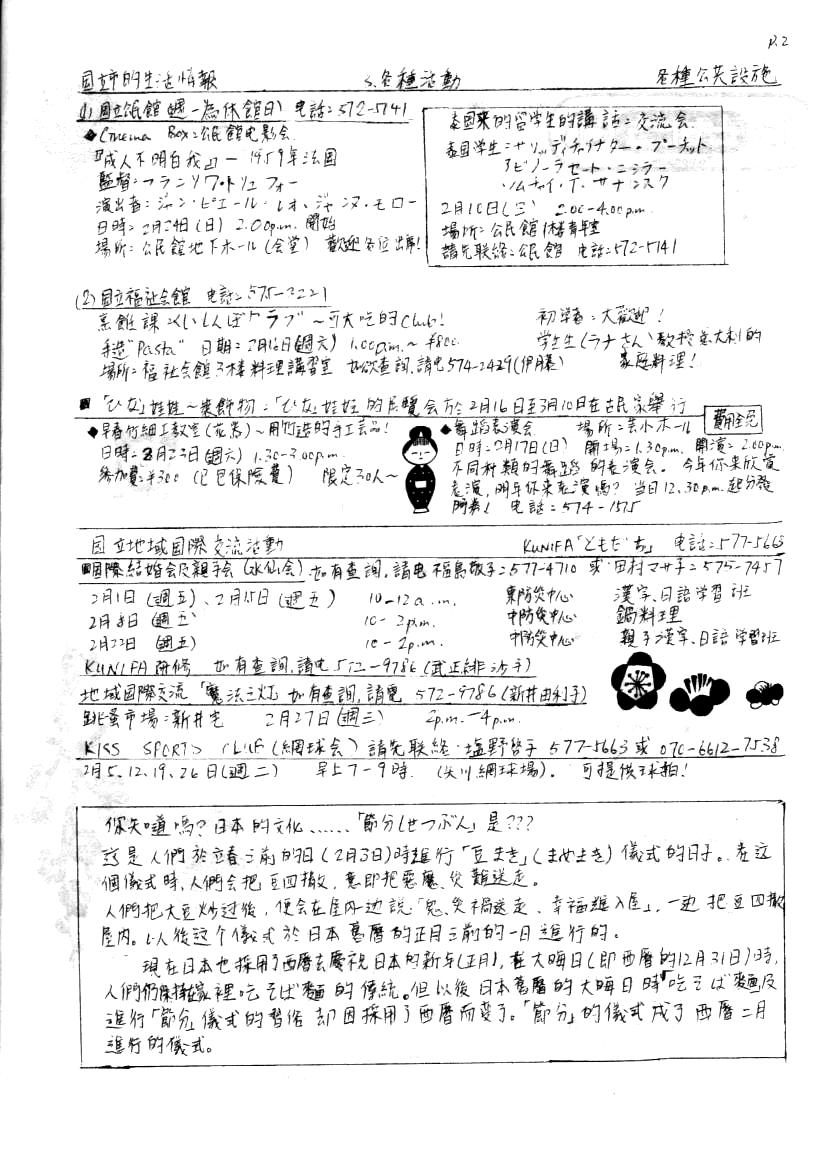 P.2
国立市的生活情報 各種活動 各種公共設施
(1) 国立公民館 (週一為休館日) 電話:572-5141
◆Cinema Box:公民館电影会
『成人不明白我』— 1959年法国
監督:フランソワ・トリュフォー
演出者:ジャン・ピエール・レオ、ジャンヌ・モロー
日時:2月24日(日) 2.00p.m. 開始
場所:公民館地下ホール(会堂) 歡迎各位出席!
泰國来的留学生的講話:交流会
泰国学生:
アピノーラセート・ニシラー
ソムチャイ・T・サナンスク
2.00-4.00p.m.
場所:公民館 1楼青年室
請先联絡:公民館 電話:572-5141
(2) 国立福祉会館 電話:575-3221
烹飪課:くいしんぼクラブ~可大吃的Club! 初学者:大歡迎!
手造"Pasta" 日期:2月16日(週六) 1.00p.m.~ ¥800. 学生生(ラナさん)教授意大利的
場所:福祉会館3楼料理講習室 如欲查詢,請电574-2429(伊藤) 家庭料理!
■「ひな」娃娃~装飾物:「ひな」娃娃的展覽会於2月16日至3月10日在古民家舉行
費用全免
◆早春竹細工教室(花器)~用竹造的手工芸品!
日時:2月23日(週六) 1.30-3.00p.m.
参加費:¥300 (已包保険費) 限定30人~
◆舞蹈表演会 場所:芸小ホール
日時:2月17日(日) 開場:1.30p.m. 開演:2.00p.m.
不同种類的舞蹈的表演会。今年你来欣賞
表演,明年你来表演嗎?当日12.30p.m.起分發
電話:574-1515
国立地域国際交流活動 KUNIFA「ともだち」 電話:577-5663
■国際結婚会及親子会(水仙会)如有查詢,請电福島敬子:577-4710 或 田村マサ子:575-7457
2月1日(週五)、2月15日(週五) 10-12a.m. 東防災中心 漢字、日語学習班
2月8日(週五) 10-2p.m. 中防災中心 鍋料理
2月22日(週五) 10-2p.m. 中防災中心 親子漢字、日語学習班
KUNIFA研修 如有查詢,請电572-9786(武正緋沙子)
地域国際交流「魔法之灯」如有查詢,請電 572-9786(新井由利子)
跳蚤市場:新井宅 2月27日(週三) 2p.m.-4p.m.
KISS SPORTS CLUB(網球会)請先联絡:塩野哲子 577-5663 或 070-6612-7538
2月5.12.19.26日(週二) 早上7-9時. (矢川網球場)。 可提供球拍!
你知道嗎?日本的文化……「節分(せつぶん」是???
這是人們於立春之前的日(2月3日)時進行「豆まき」(まめまき)儀式的日子。在这
個儀式時,人們会把豆四撒,意即把惡魔、災難送走。
人們把大豆炒过後,便会在屋内一边説「鬼、災禍送走、幸福進入屋」,一边把豆四撒
屋内。以後这个儀式於日本舊曆的正月之前的一日進行的。
現在日本也採用了西曆去慶祝日本的新年(正月),在大晦日(即西曆的12月31日)時,
人們仍保持在家裡吃そば麵的傳統。但以後日本舊曆的大晦日時吃そば麵及
進行「節分」儀式的習俗却因採用了西曆而变了。「節分」的儀式成了西曆二月
進行的儀式。